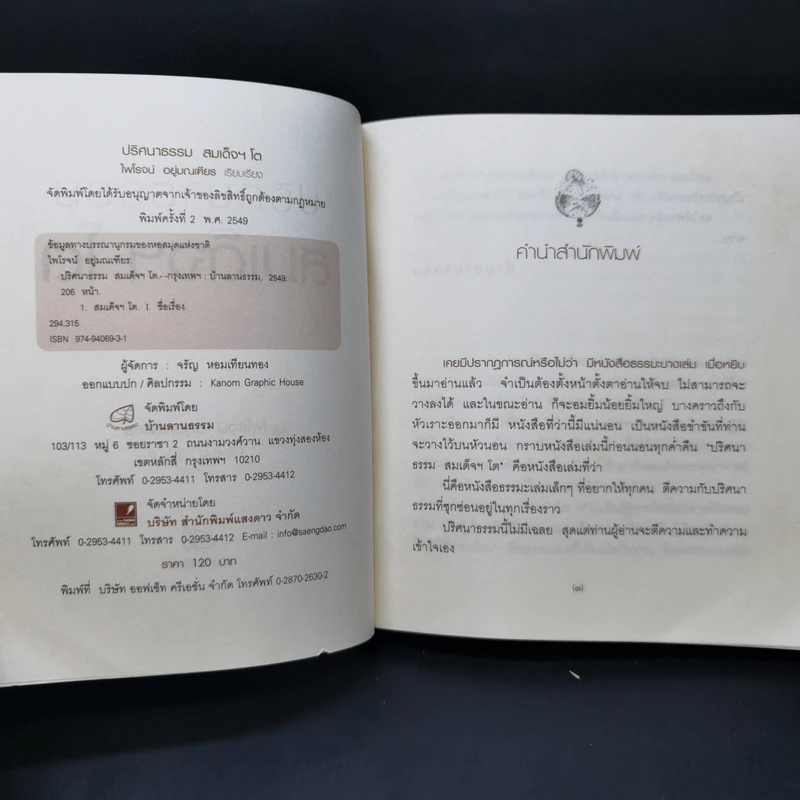 ปริศนาธรรม สมเด็จฯ โต
ไพโรจน์ อยู่มณเฑียร เรียบเรียง
จัดพิมพ์โดยได้รับอนุญาตจากเจ้าของลิขสิทธิ์ถูกต้องตามกฎหมาย
พิมพ์ครั้งที่ 2 พ.ศ. 2549
ข้อมูลทางบรรณานุกรมของหอสมุดแห่งชาติ
ไพโรจน์ อยู่มณเฑียร.
ปริศนาธรรม สมเด็จฯ โต.--กรุงเทพฯ : บ้านลานธรรม, 2549.
206 หน้า.
1. สมเด็จฯ โต. I. ชื่อเรื่อง.
294.315
ISBN 974-94069-3-1
ผู้จัดการ : จรัญ หอมเทียนทอง
ออกแบบปก / ศิลปกรรม : Kanom Graphic House
จัดพิมพ์โดย
บ้านลานธรรม
103/113 หมู่ 6 ซอยราชา 2 ถนนงามวงศ์วาน แขวงทุ่งสองห้อง
เขตหลักสี่ กรุงเทพฯ 10210
โทรศัพท์ 0-2953-4411 โทรสาร 0-2953-4412
จัดจำหน่ายโดย
บริษัท สำนักพิมพ์แสงดาว จำกัด
โทรศัพท์ 0-2953-4411 โทรสาร 0-2953-4412 E-mail : info@saengdao.com
ราคา 120 บาท
พิมพ์ที่ บริษัท ออฟเซ็ท ครีเอชั่น จำกัด โทรศัพท์ 0-2870-2630-2
คำนำสำนักพิมพ์
เคยมีปรากฏการณ์หรือไม่ว่า มีหนังสือธรรมะบางเล่ม เมื่อหยิบ
ขึ้นมาอ่านแล้ว จำเป็นต้องตั้งหน้าตั้งตาอ่านให้จบ ไม่สามารถจะ
วางลงได้ และในขณะอ่าน ก็จะอมยิ้มน้อยยิ้มใหญ่ บางคราวถึงกับ
หัวเราะออกมาก็มี หนังสือที่ว่านี้มีแน่นอน เป็นหนังสือขำขันที่ท่าน
จะวางไว้บนหัวนอน กราบหนังสือเล่มนี้ก่อนนอนทุกค่ำคืน ‘ปริศนา
ธรรม สมเด็จฯ โต’ คือหนังสือเล่มที่ว่า
นี่คือหนังสือธรรมะเล่มเล็กๆ ที่อยากให้ทุกคน ตีความกับปริศนา
ธรรมที่ซุกซ่อนอยู่ในทุกเรื่องราว
ปริศนาธรรมนี้ไม่มีเฉลย สุดแต่ท่านผู้อ่านจะตีความและทำความ
เข้าใจเอง
(๓)